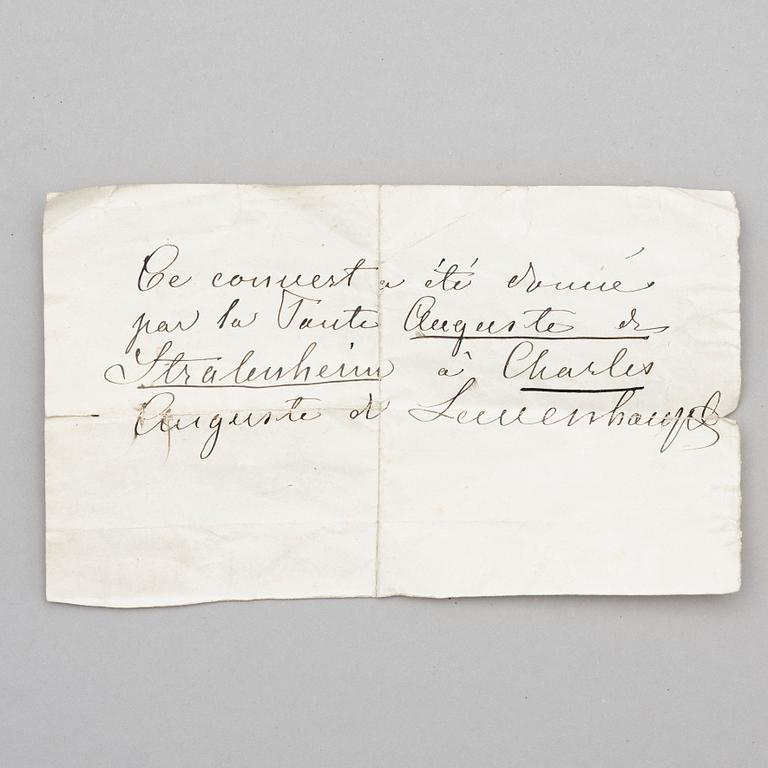 Ce couvert a été donné
par la Tante Auguste de
Stralenheim à Charles
Auguste de Leuvenhaupt